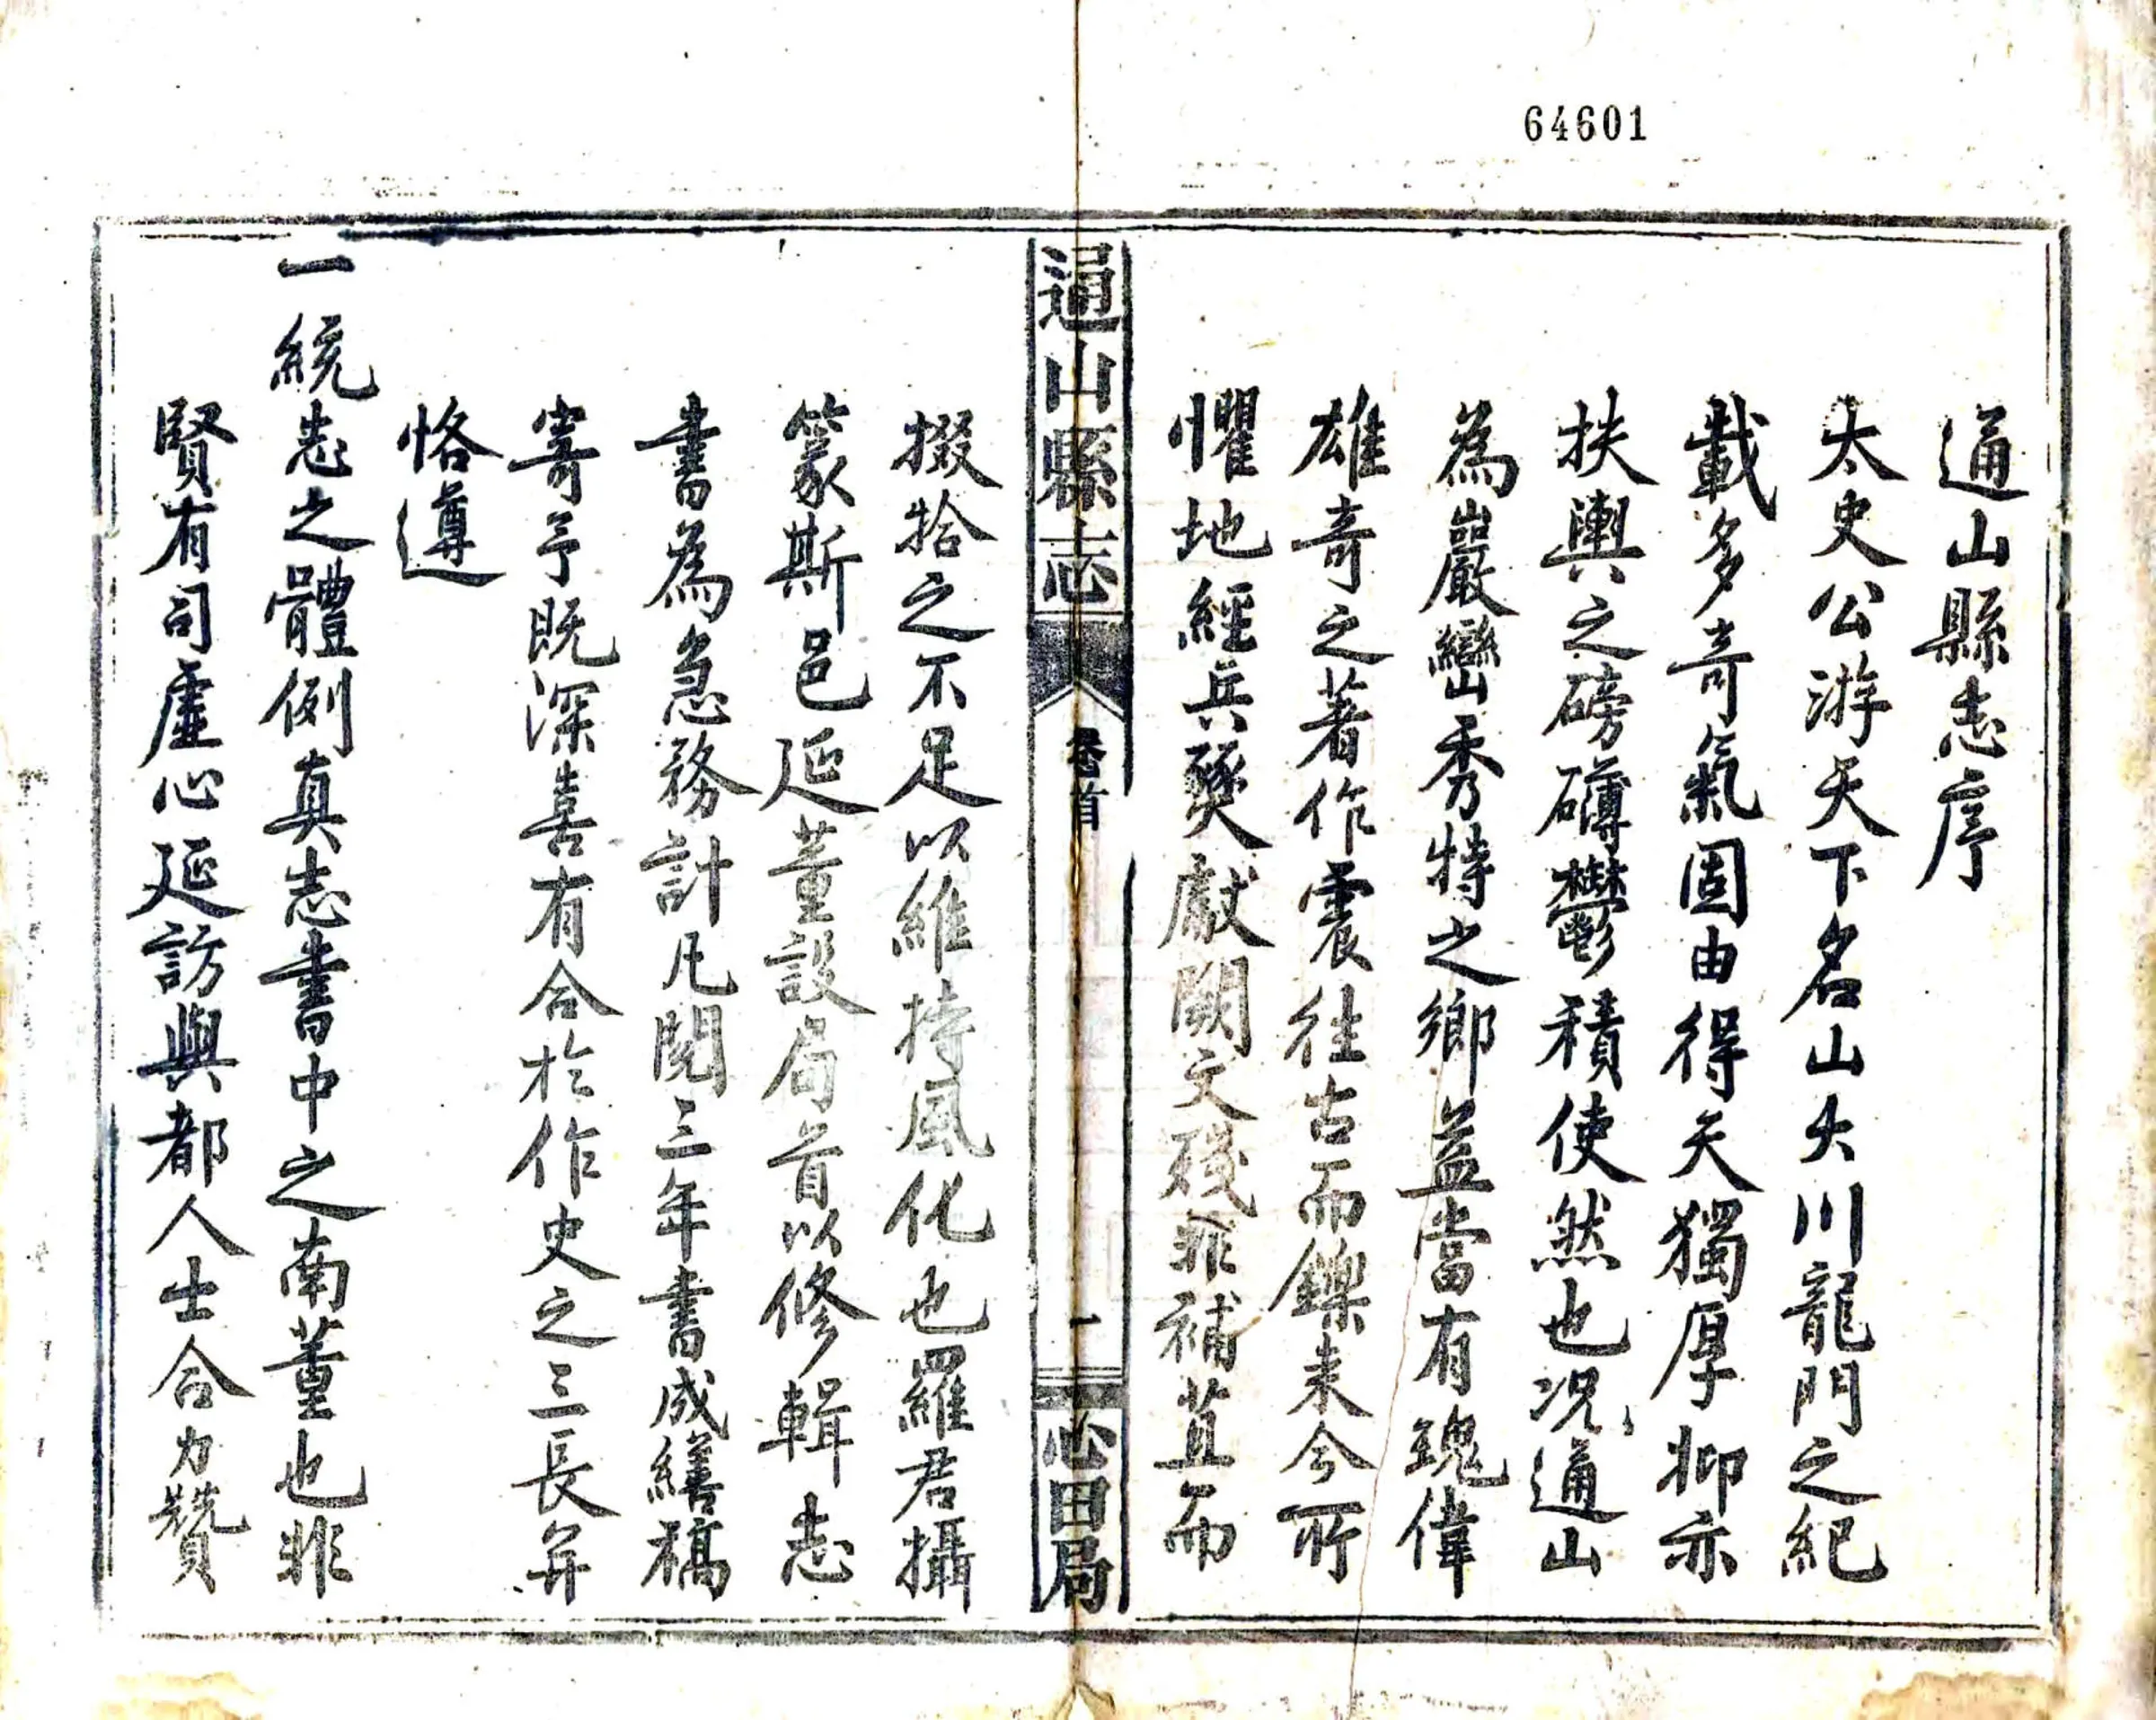 64601
通山縣志序
太史公游天下名山大川龍門之紀
載多奇氣固由得天獨厚抑亦
扶輿之磅礴鬱積使然也况通山
為巖巒秀特之鄉益當有瑰偉
雄奇之著作震往古而鑠來今所
懼地經兵燹獻闕文殘非補苴而
通山縣志
卷首
一
心田局
掇拾之不足以維持風化也羅君攝
篆斯邑延董設局首以修輯志
書為急務計凡閱三年書成繕稿
寄予既深喜有合於作史之三長并
恪遵
一統志之體例真志書中之南董也非
賢有司虛心延訪與都人士合力贊